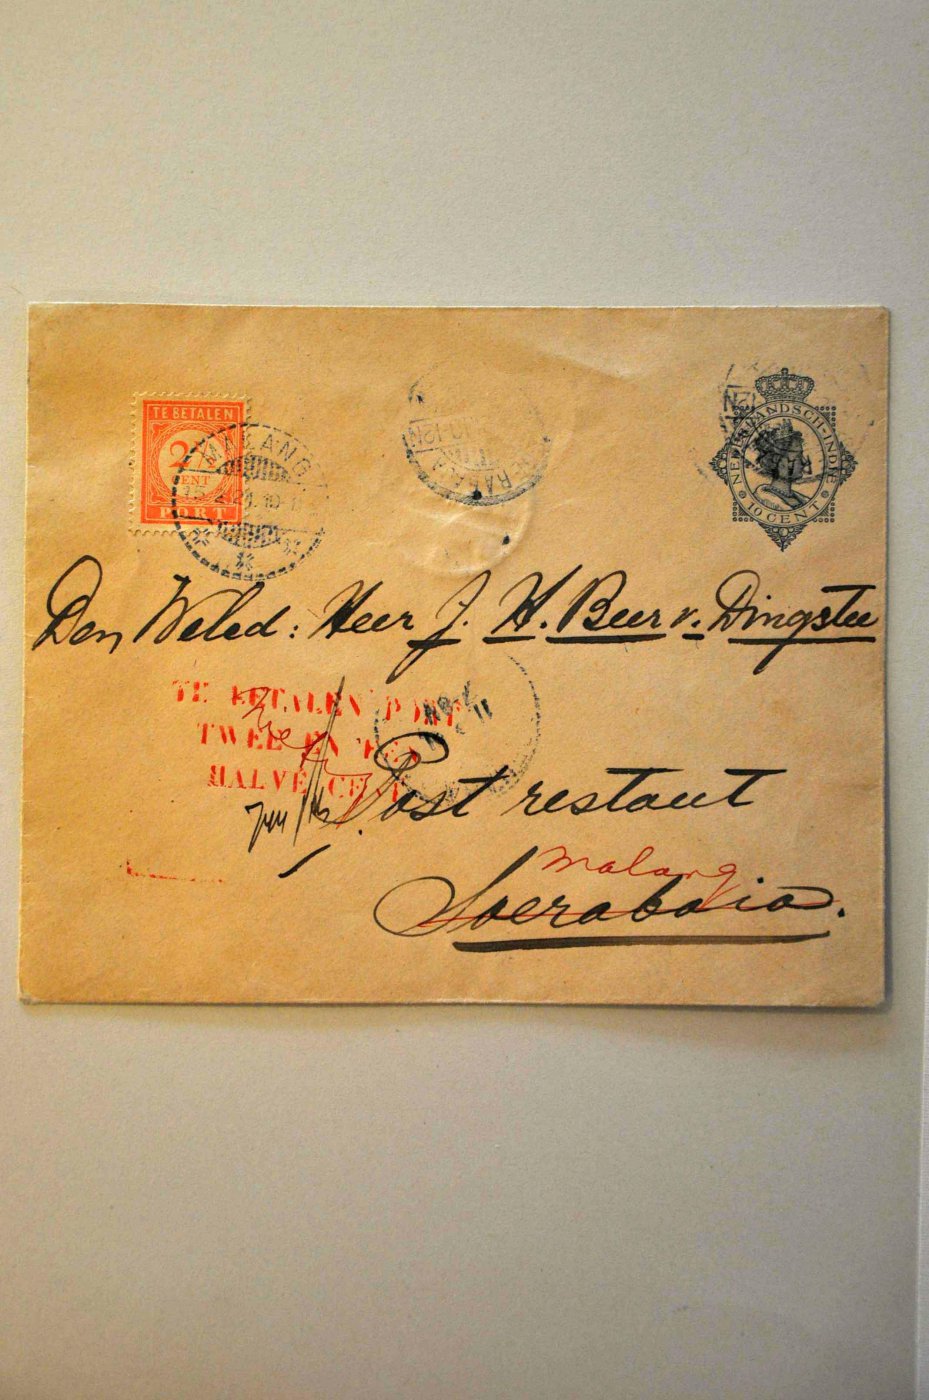 TE BETALEN
2½
CENT
PORT
MALANG
15.2.21.10-11
NEDERLANDSCH-INDIË
10 CENT
Den Weled: Heer J. H. Beer v. Dingstee
TE BETALEN PORT
TWEE EN EEN
HALVE CENT
Post restant
Malang
Soerabaia.